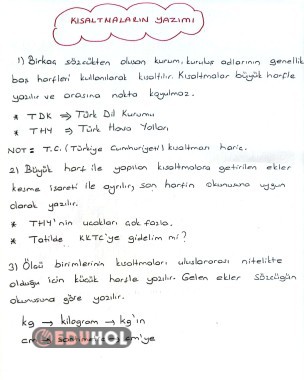 KISALTMALARIN YAZIMI
1) Birkaç sözcükten oluşan kurum, kuruluş adlarının genellik
baş harfleri kullanılarak kısaltılır. Kısaltmalar büyük harfle
yazılır ve arasına nokta koyulmaz.
* TDK ⇒ Türk Dil Kurumu
* THY ⇒ Türk Hava Yolları
NOT = T.C. (Türkiye Cumhuriyeti) kısaltması hariç.
2) Büyük harf ile yapılan kısaltmalara getirilen ekler
kesme işareti ile ayrılır, son harfin okunuşuna uygun
olarak yazılır.
* THY'nin uçakları çok fazla.
* Tatilde KKTC'ye gidelim mi?
3) Ölçü birimlerinin kısaltmaları uluslararası nitelikte
olduğu için küçük harfle yazılır. Gelen ekler sözcüğün
okunuşuna göre yazılır.
kg → kilogram → kg'ın
cm → 'ye
EDUHOL